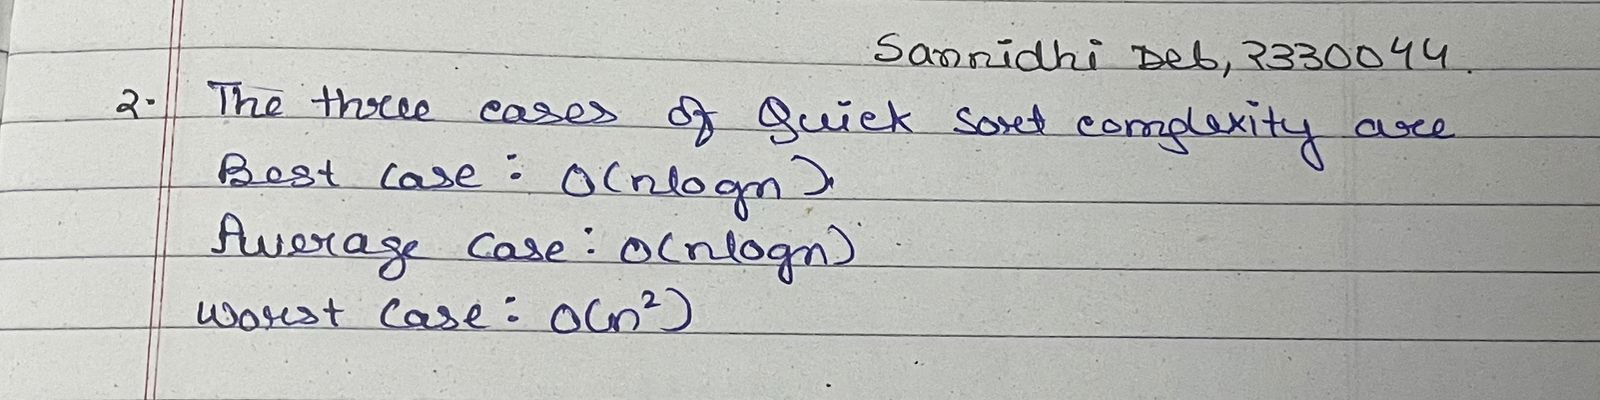 Sannidhi Deb, 2330044.
2. The three cases of Quick sort complexity are
Best case : O(nlogn)
Average case : O(nlogn)
Worst case : O(n²)